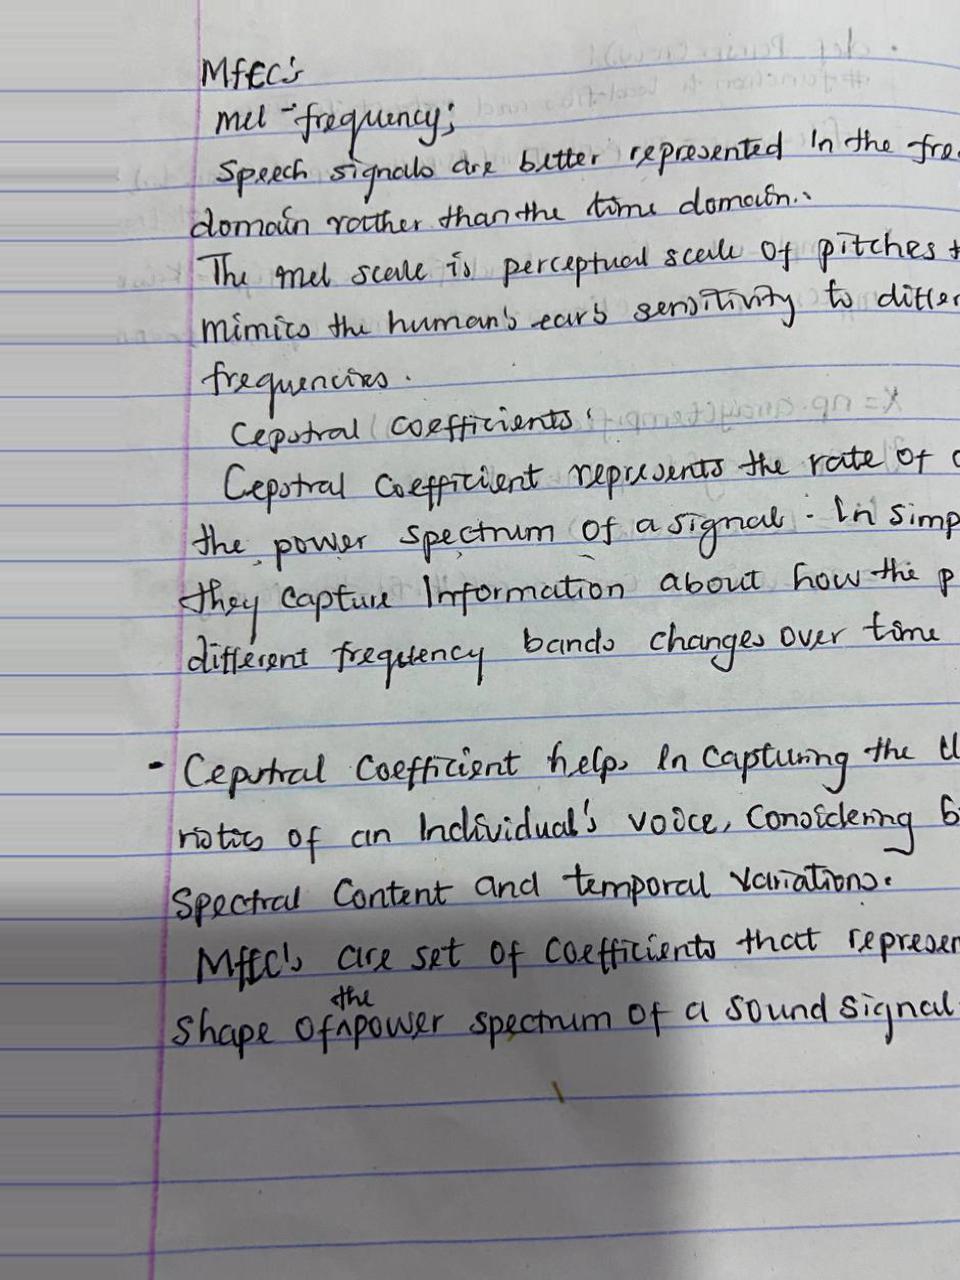 MFCC's
mel-frequency;
Speech signals are better represented in the fre
domain ratther than the time domain.
The mel scale is perceptual scale of pitches t
mimics the human's ear's sensitivity to differ
frequencies.
Cepstral Coefficients:
Cepstral Coefficient represents the rate of c
the power spectrum of a signal. In simp
they capture Information about how the p
different frequency bands changes over time
- Cepstral Coefficient helps In Capturing the
ristics of an Individual's voice, Considering b
Spectral Content and temporal variations.
MFCC's are set of coefficients that represen
shape of the power spectrum of a sound signal